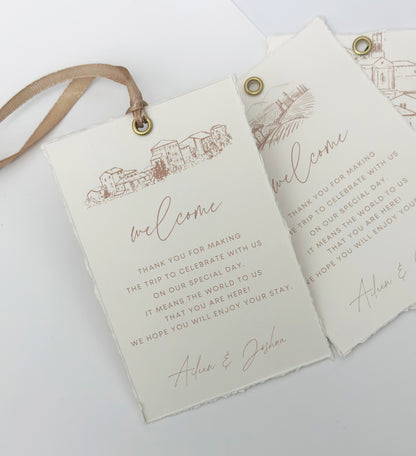 welcome
THANK YOU FOR MAKING
THE TRIP TO CELEBRATE WITH US
ON OUR SPECIAL DAY.
IT MEANS THE WORLD TO US
THAT YOU ARE HERE!
WE HOPE YOU WILL ENJOY YOUR STAY.
Aileen & Joshua
welcome
THANK YOU FOR MAKING
THE TRIP TO CELEBRATE WITH US
ON OUR SPECIAL DAY.
IT MEANS THE WORLD TO US
THAT YOU ARE HERE!
WE HOPE YOU WILL ENJOY YOUR
Aileen &